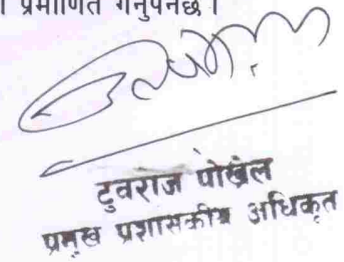 प्रमाणित गर्नुपर्नेछ।
टुवराज पोखेल
प्रमुख प्रशासकीय अधिकृत